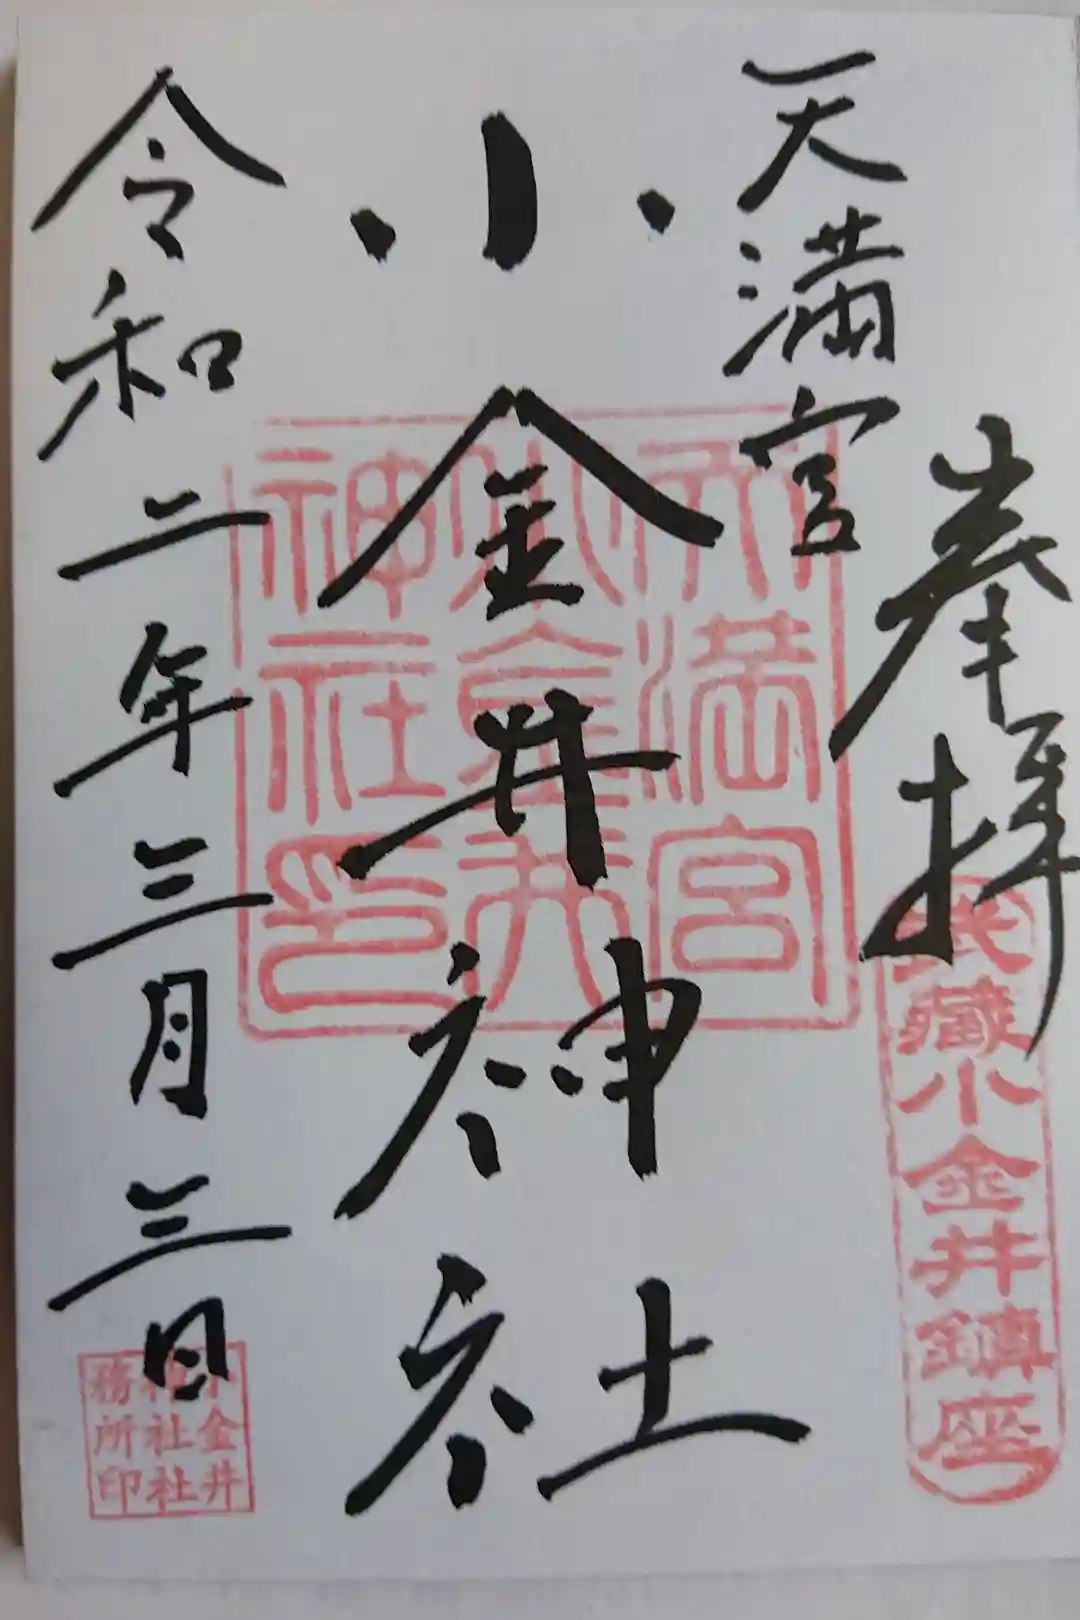 奉拝
天満宮
小金井神社
令和二年三月三日
天満宮
小金井
神社印
武蔵小金井鎮座
小金井
神社社
務所印